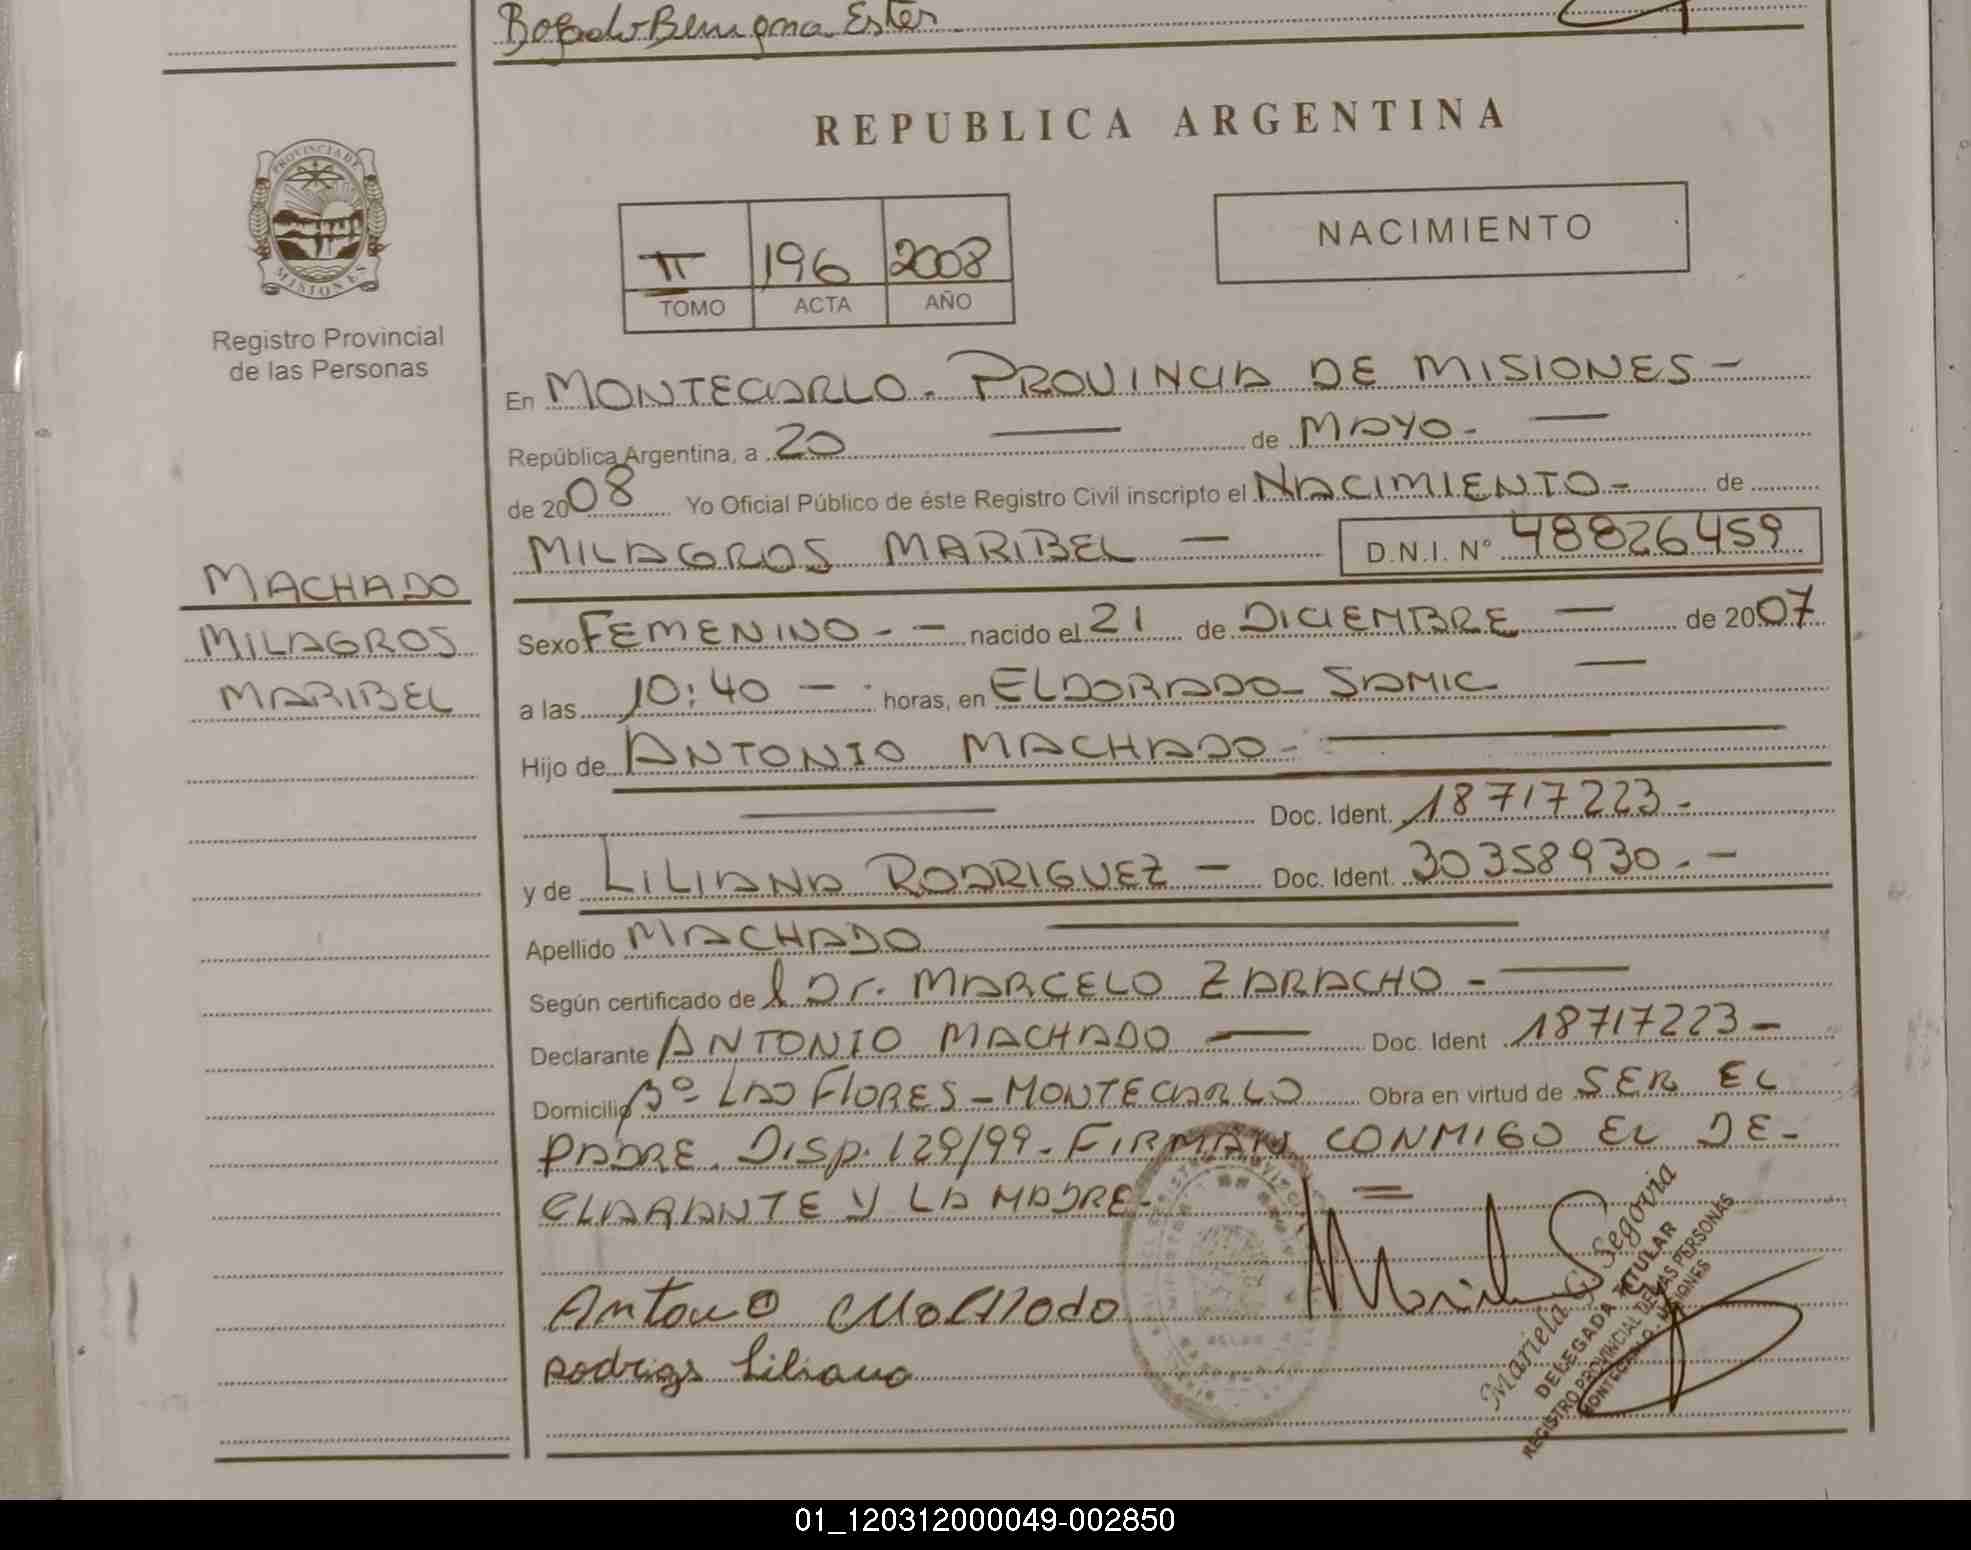 Bogado Benigna Ester
REPUBLICA ARGENTINA
PROVINCIA DE
MISIONES
Registro Provincial
de las Personas
II 196 2008
TOMO ACTA AÑO
NACIMIENTO
En MONTECARLO - PROVINCIA DE MISIONES -
República Argentina, a 20 de MAYO -
de 2008 Yo Oficial Público de éste Registro Civil inscripto el NACIMIENTO - de
MILAGROS MARIBEL - D.N.I. N° 48826459
MACHADO
MILAGROS
MARIBEL
Sexo FEMENINO - - nacido el 21 de DICIEMBRE - de 2007
a las 10:40 - horas, en ELDORADO - SAMIC -
Hijo de ANTONIO MACHADO -
Doc. Ident. 18717223 -
y de LILIANA RODRIGUEZ - Doc. Ident. 30358930 . -
Apellido MACHADO
Según certificado de l Dr. MARCELO ZARACHO -
Declarante ANTONIO MACHADO - Doc. Ident 18717223 -
Domicilio Bº LAS FLORES - MONTECARLO Obra en virtud de SER EL
PADRE. DISP. 129/99 - FIRMAN CONMIGO EL DE-
CLARANTE Y LA MADRE -
Antonio Machado
Rodrigs Liliana
Mariela G. Segovia
DELEGADA TITULAR
REGISTRO PROVINCIAL DE LAS PERSONAS
MONTECARLO - MISIONES
01_120312000049-002850